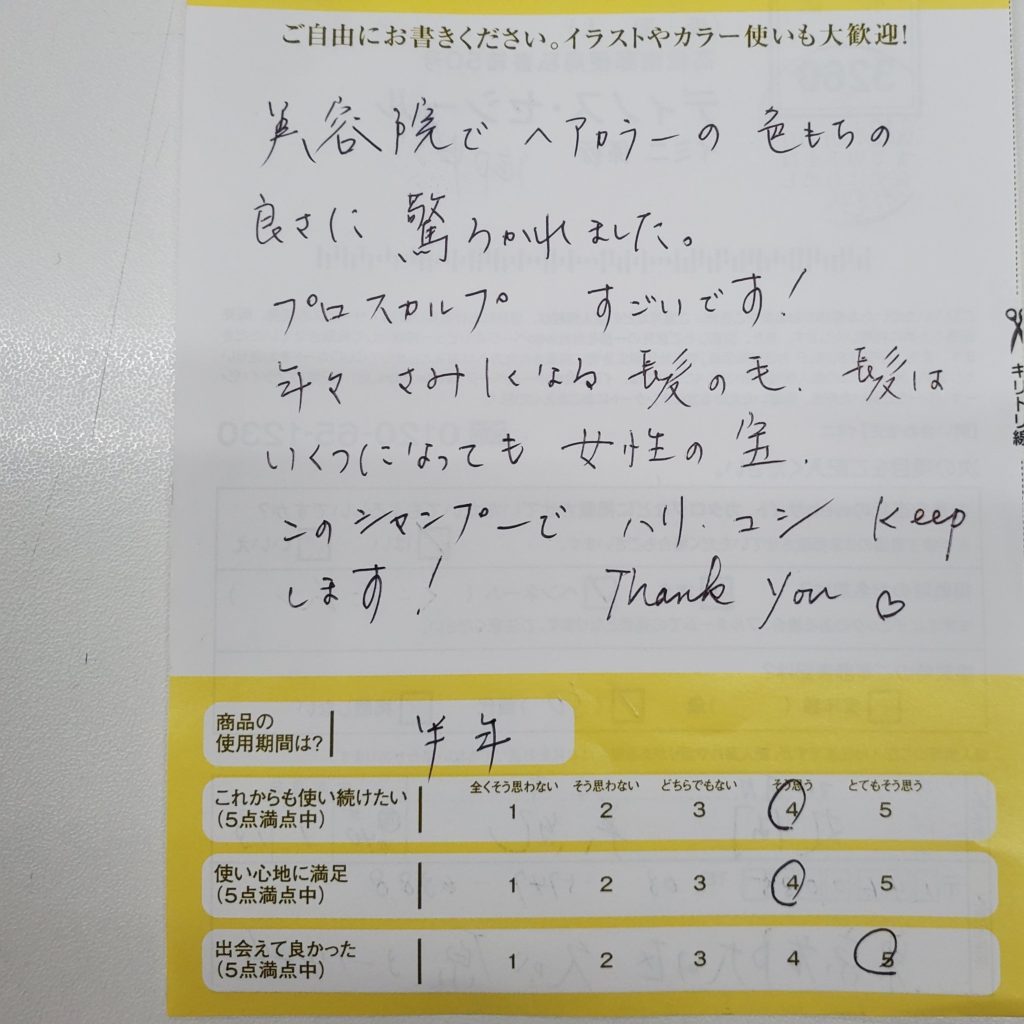 ご自由にお書きください。イラストやカラー使いも大歓迎!
美容院で ヘアカラーの 色もちの
良さに 驚ろかれました。
プロスカルプ すごいです!
年々 さみしくなる 髪の毛. 髪は
いくつになっても 女性の 宝.
このシャンプーで ハリ・コシ Keep
します! Thank You ♡
キリトリ線
商品の
使用期間は? 半年
これからも使い続けたい
(5点満点中)
全くそう思わない そう思わない どちらでもない そう思う とてもそう思う
1 2 3 4 5
使い心地に満足
(5点満点中)
1 2 3 4 5
出会えて良かった
(5点満点中)
1 2 3 4 5